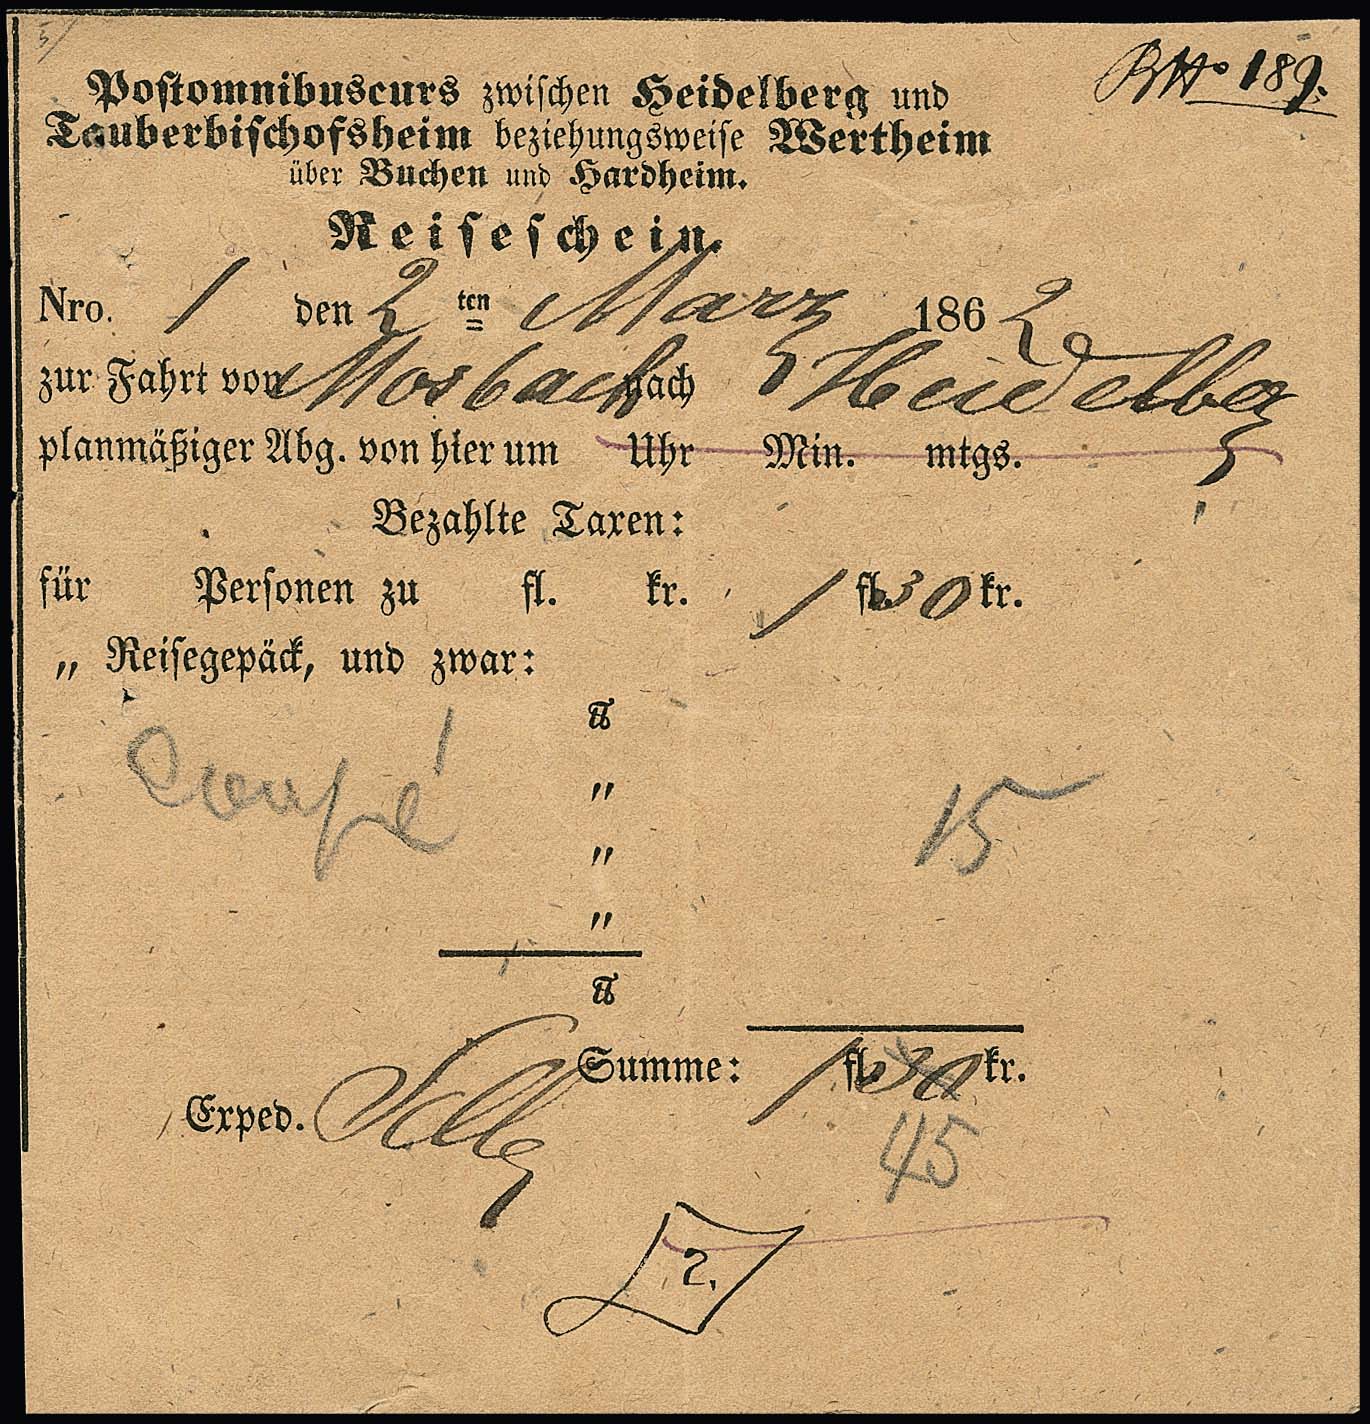 Postomnibuscurs zwischen Heidelberg und
Tauberbischofsheim beziehungsweise Wertheim
über Buchen und Hardheim.
Reiseschein.
Nro. 1 den 2 ten März 1862
zur Fahrt von Mosbach nach Heidelberg
planmäßiger Abg. von hier um Uhr Min. mtgs.
Bezahlte Taxen:
für Personen zu fl. kr. 1 fl. 30 kr.
„ Reisegepäck, und zwar:
℔
Coupé " 15
"
"
℔
Summe: 1 fl. 30 kr.
Exped.
45
2.
189.